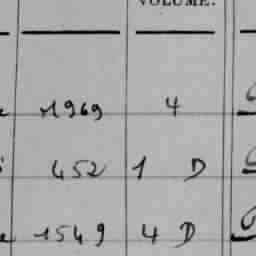 VOLUME.
1969 4
452 1 D
1549 4 D